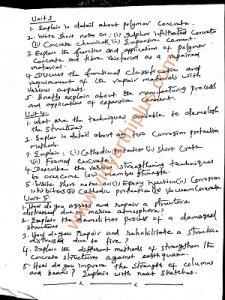 Unit 3
1. Explain in detail about polymer concrete.
2. Write short notes on: (i) Sulphur infiltrated concrete
(ii) Concrete chemicals (iii) Expansion cement.
3. Explain the function and application of polymer
Concrete and fibre reinforced as a repairing
material.
4. Discuss the functional classification and
requirement of the repair materials with
various aspects.
5. Briefly explain about the manufacturing process
and application of expansion cement.
Unit 4
1. What are the techniques available to demolish
the structures
2. Explain in detail about any two corrosion protection
methods.
3. Explain: (i) Cathodic protection (ii) Short crete
(iii) Framed concrete
4. Describe the various strengthening techniques
to overcome low member strength.
5. Write short notes on: (i) Epoxy injection (ii) Corrosion
inhibitors (iii) Cathodic protection (iv) Vacuum concrete
Unit 5
1. How do you assess and repair a structure
distressed due to marine atmosphere?
2. Explain the demolition process of a damaged
structure
3. How do you repair and rehabilitate a structure
distressed due to fire.
4. Explain the different methods of strengthen the
concrete structures against earthquake.
5. How do you the strength of columns
and beams? Explain with neat sketches.